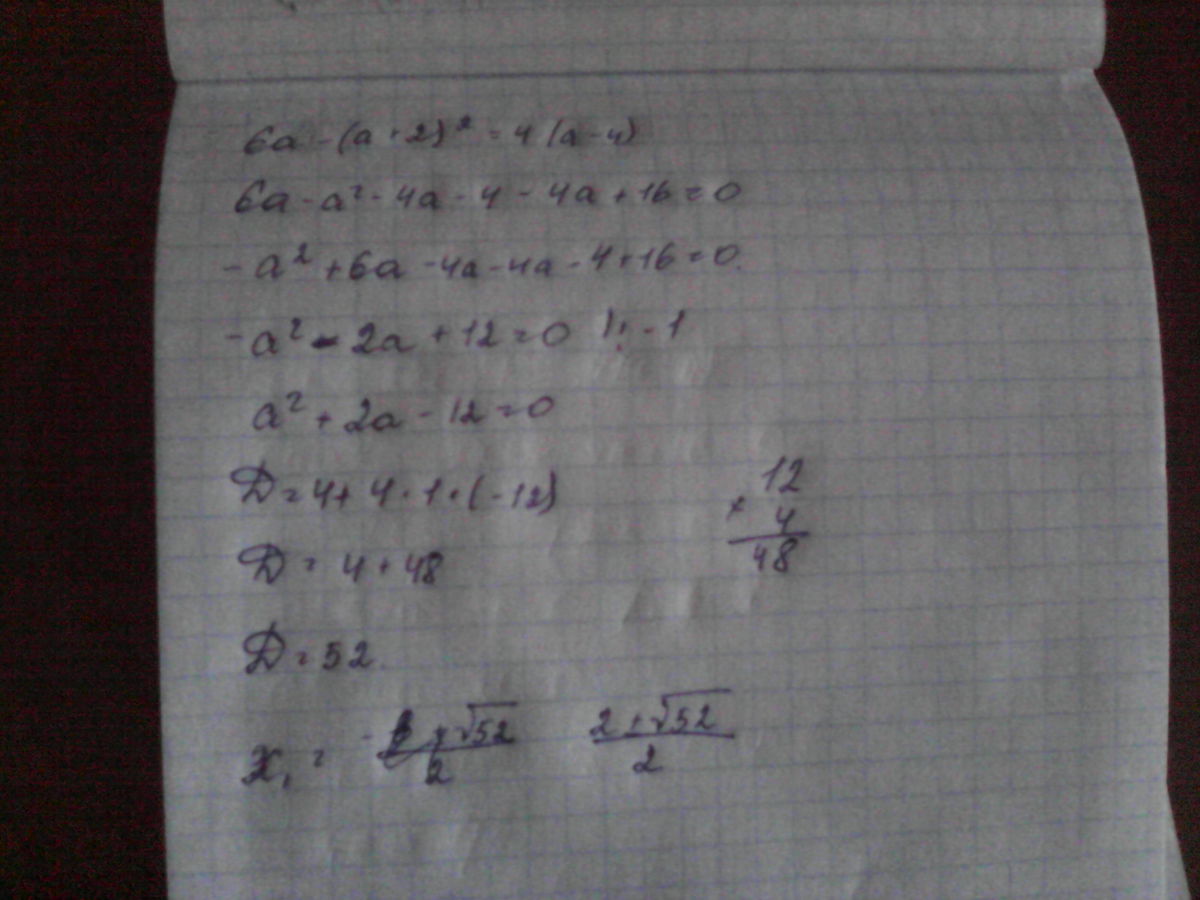 6a - (a + 2)² = 4 (a - 4)
6a - a² - 4a - 4 - 4a + 16 = 0
- a² + 6a - 4a - 4a - 4 + 16 = 0.
- a² - 2a + 12 = 0 |: -1
a² + 2a - 12 = 0
D = 4 + 4 · 1 · (-12)
12
× 4
48
D = 4 + 48
D = 52.
x₁ = + √52 / 2   2 ± √52 / 2